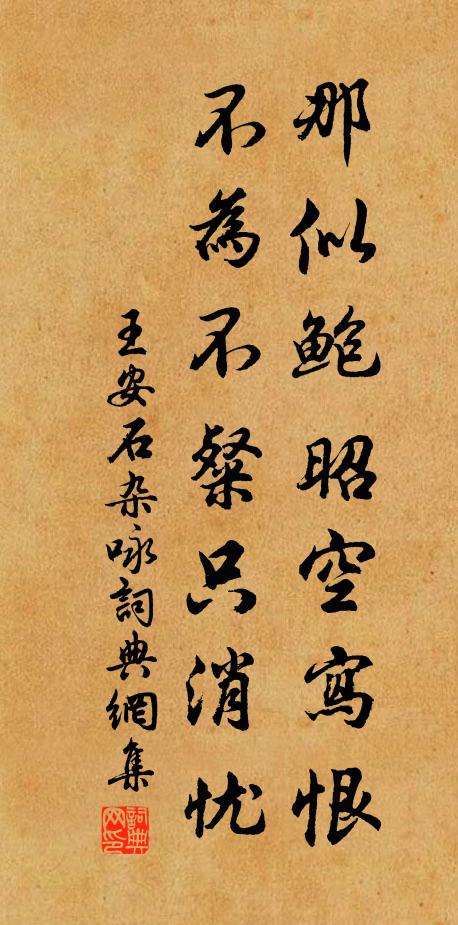 那似鲍昭空寫恨
不為不粲只消忧
王安石杂咏詞典網集
詞典网印